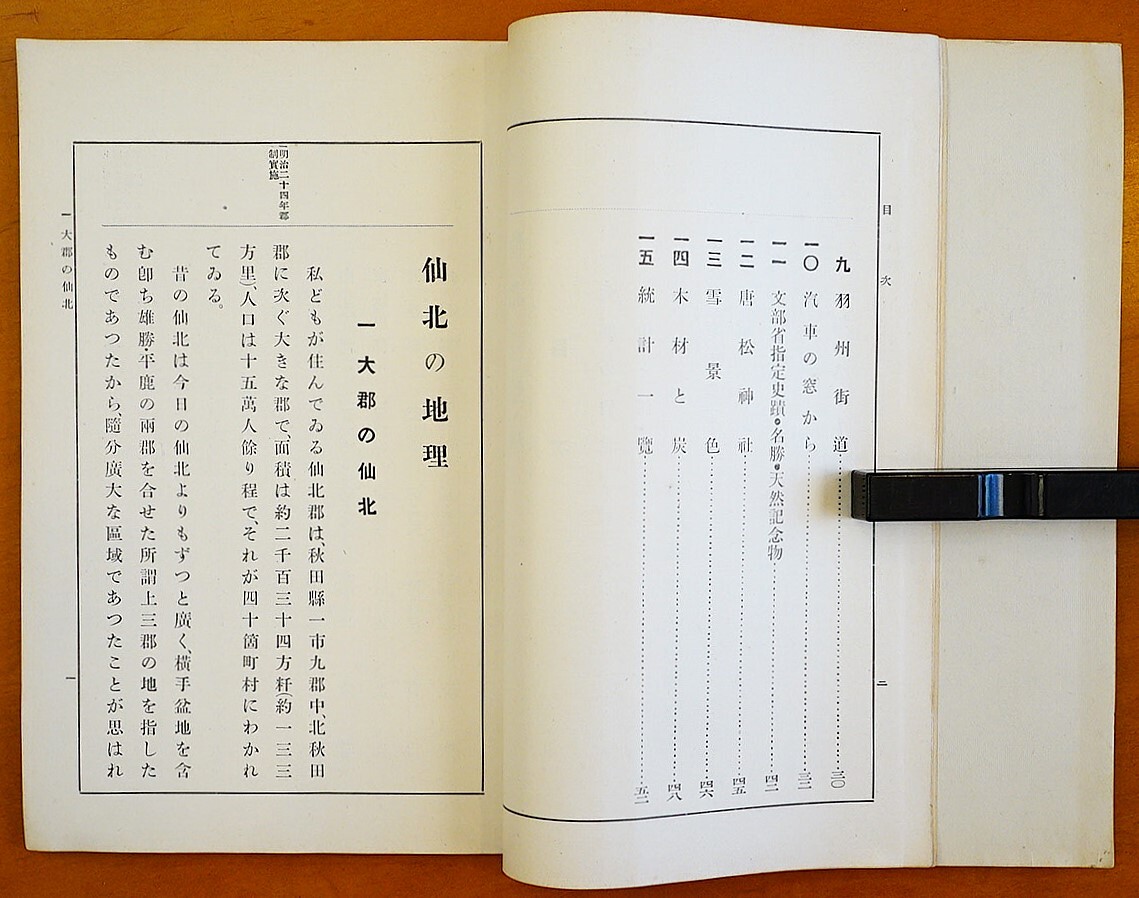 目次
九 羽州街道……三〇
一〇 汽車の窓から……三二
一一 文部省指定史蹟・名勝・天然記念物……四二
一二 唐松神社……四五
一三 雪景色……四六
一四 木材と炭……四八
一五 統計一覽……五二
二
仙北の地理
一 大郡の仙北
私どもが住んでゐる仙北郡は、秋田縣一市九郡中、北秋田
郡に次ぐ大きな郡で、面積は約二千百三十四方粁(約一三三
方里)、人口は十五萬人餘り程で、それが四十箇町村にわかれ
てゐる。
昔の仙北は今日の仙北よりもずつと廣く、橫手盆地を含
む卽ち雄勝・平鹿の兩郡を合せた所謂上三郡の地を指した
ものであつたから、隨分廣大な區域であつたことが思はれ
明治二十四年郡
制實施
一 大郡の仙北
一